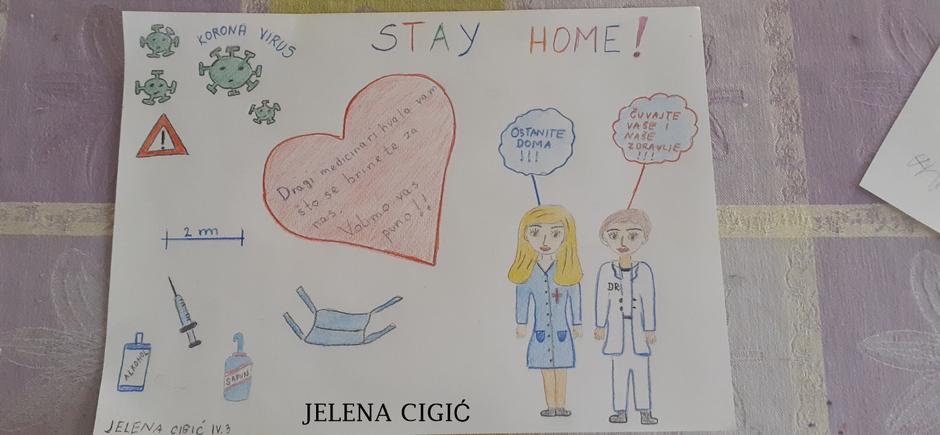 KORONA VIRUS
STAY HOME!
Dragi medicinari hvala vam
što se brinete za
nas.
Volimo vas
puno!!
OSTANITE
DOMA
!!!
ČUVAJTE
VAŠE I
NAŠE
ZDRAVLJE
!!!
2 m
DR.
ALKOHOL
SAPUN
JELENA CIGIĆ
JELENA CIGIĆ IV.3